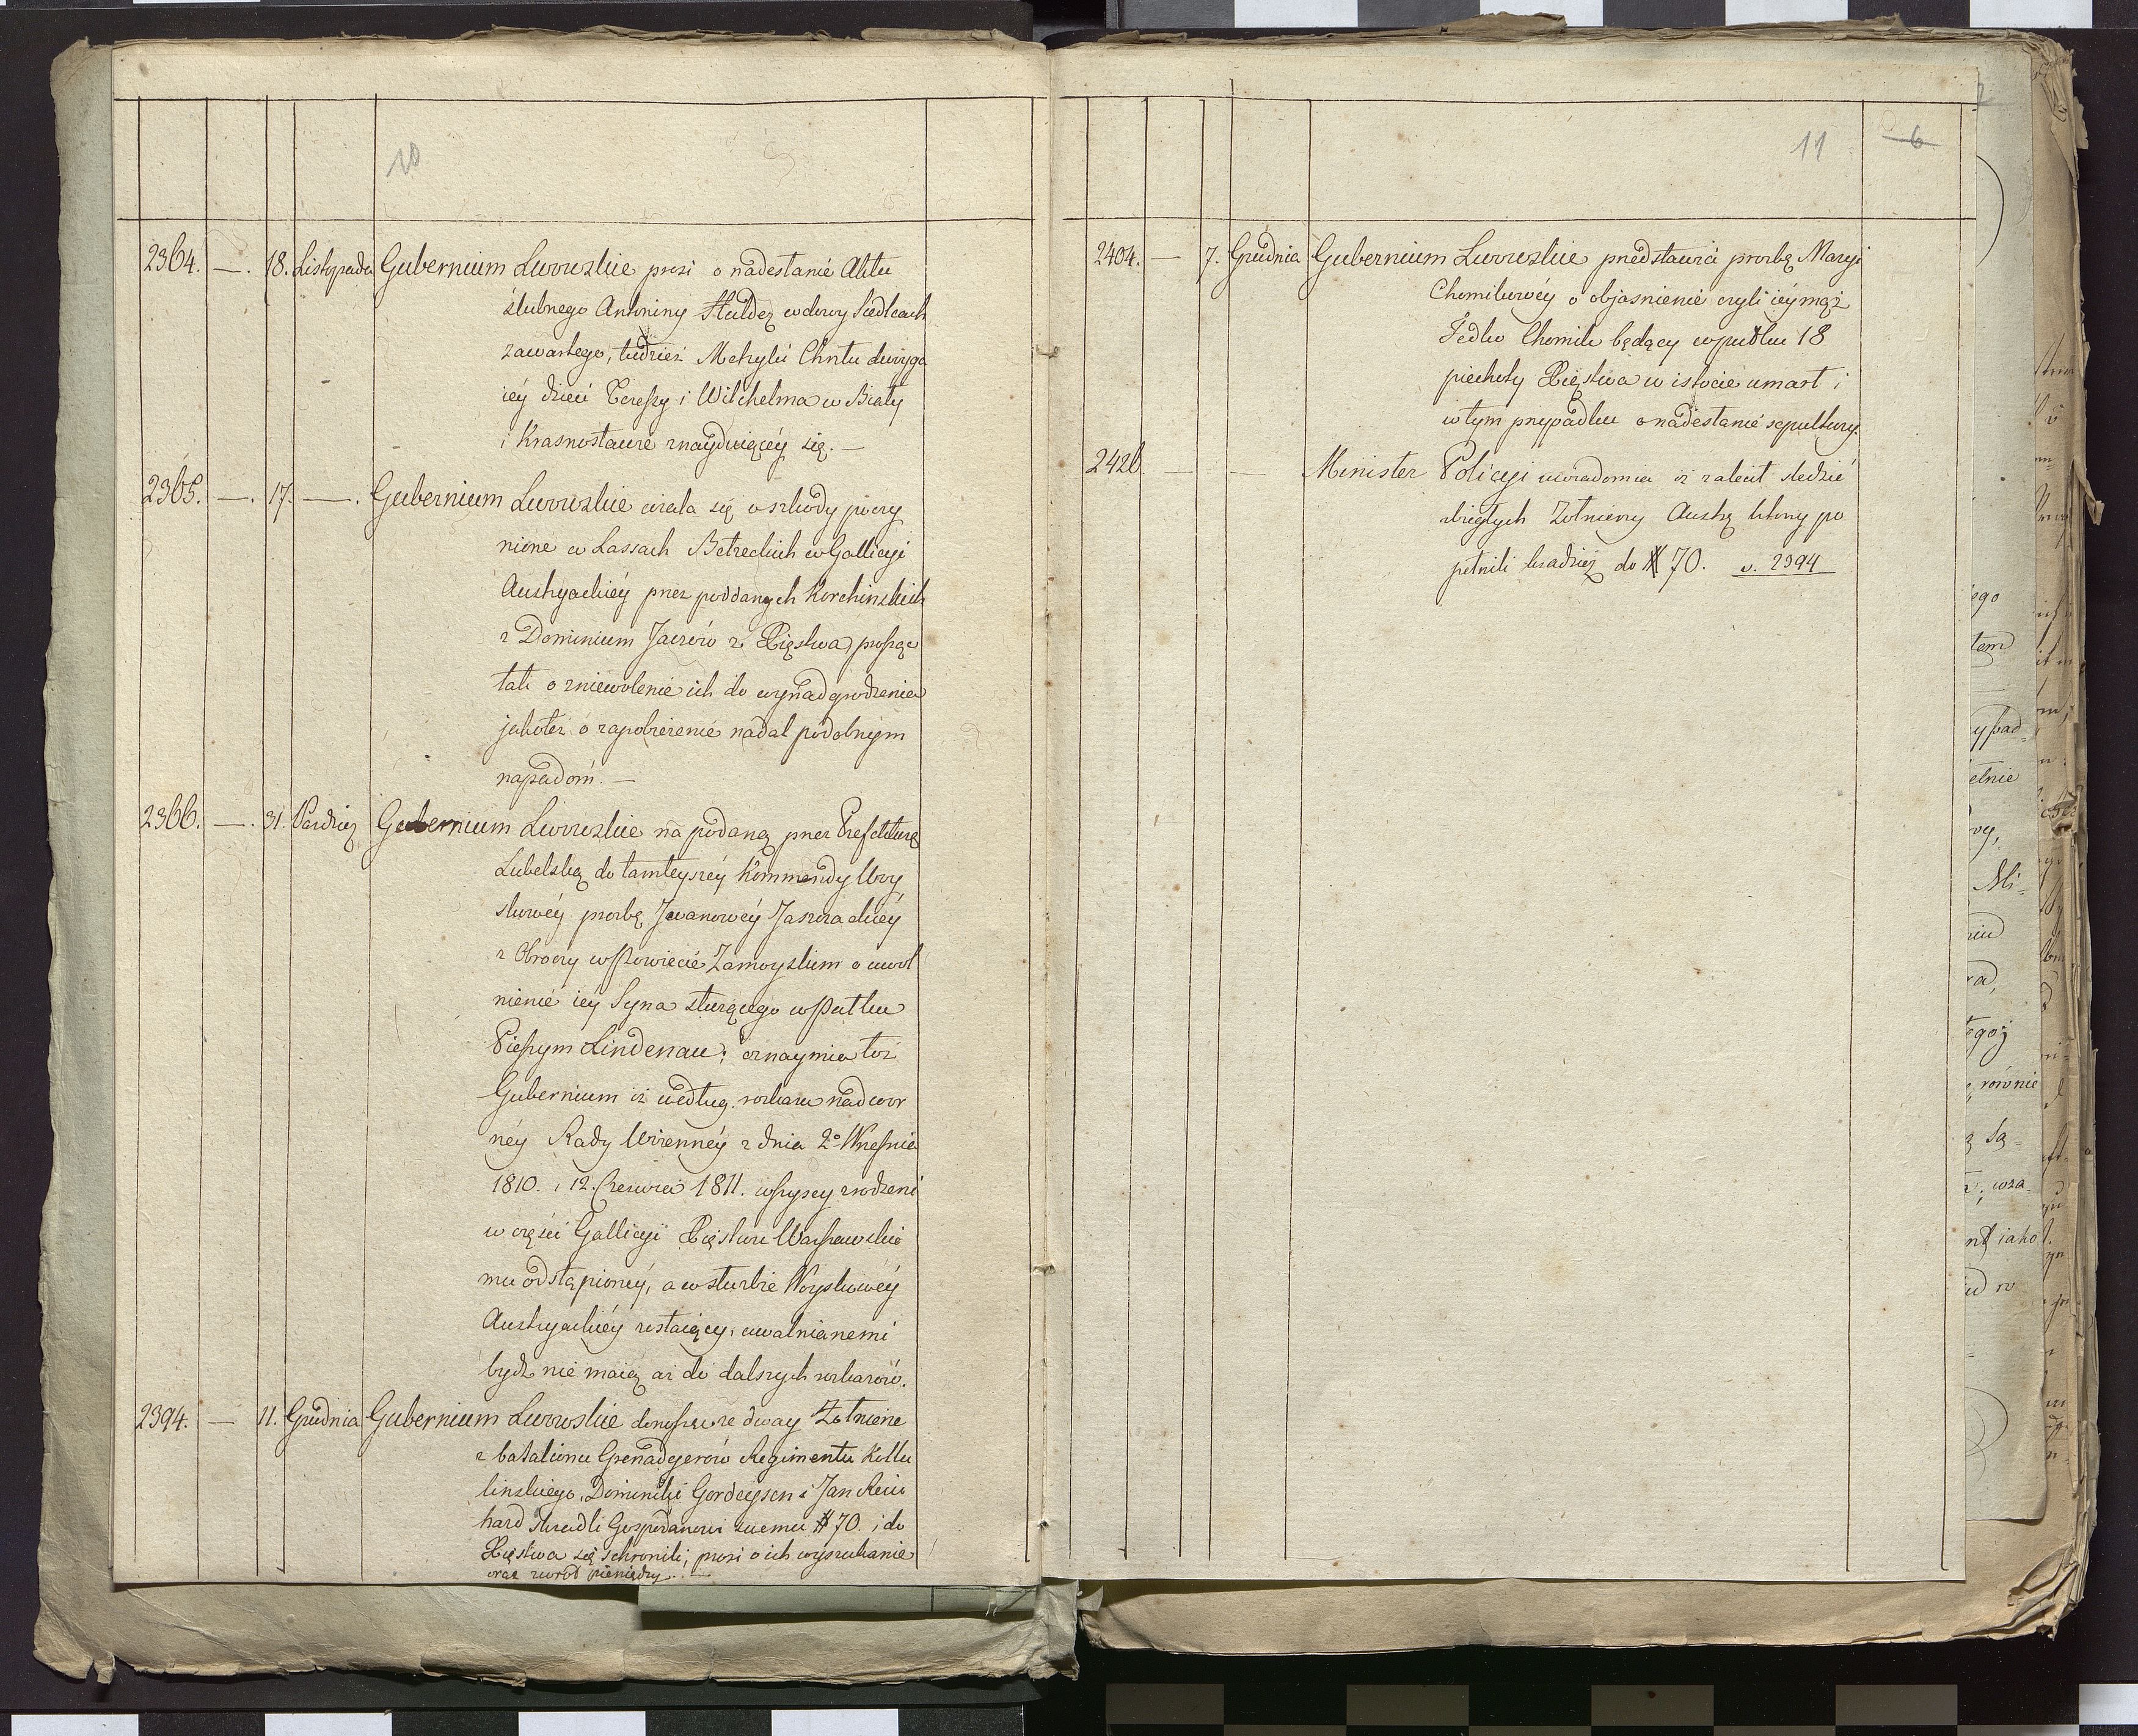 10
2364. —. 18. Listopada Gubernium Lwowskie prosi o nadesłanie Aktu
ślubnego Antoniny wdowy Siedlcach
zawartego, tudzież Metryki Chrztu dwoyga
iéy dzieci Tereszy i Wilchelma w Biały
i Krasnostawie znayduiącéy się. —
2365. —. 17. —. Gubernium Lwowskie użala się o szkody poczy
nione w Lassach w Gallicyi
Austryackiéy przez poddanych Korchinskich
z Dominium z Xięstwa, prosząc
tak o zniewolenie ich do wynadgrodzenia
jakoteż o zapobieżenie nadal podobnym
napadom. —
2366. —. 31. Paździer Gubernium Lwowskie na podaną przez Prefekturę
Lubelską do tamteyszéy Kommendy Woy
skowéy prozbę Jwanowéy
z Obroczy w Powiecie Zamoyskim o uwol
nienie iéy Syna służącego w Pułku
Pieszym Lindenau; oznaymia toż
Gubernium iż według rozkazu nadwor
néy Rady Woienney z dnia 2º Wrześnie
1810. i 12. Czerwca 1811. wszyscy zrodzeni
w części Gallicyi Xięstwu Warszawskie
mu odstąpionéy, a w służbie Woyskowéy
Austryackiéy zostaiący, uwalnianemi
bydź nie maią aż do dalszych rozkazów.
2394. — 11. Grudnia Gubernium Lwowskie donosząc że dway Żołnierze
z batalionu Grenadyerów Regimentu Kottu
linskiego, Dominik i Jan Rein
hard skradli Gospodarzowi swemu # 70. i do
Xięstwa się schronili; prosi o ich wyszukanie
oraz zwrot pieniędzy. —
11 6
2404. — 7. Grudnia Gubernium Lwowskie przedstawia prozbę Maryi
Chomikowéy o objasnienie czyli iéy mąż
Fedko Chomik będący w pułku 18
piechoty Xięstwa w istocie umarł i
w tym przypadku o nadesłanie sepultury.
2426. — — Minister Policyi uwiadomia iż zalecił sledzić
zbiegłych Żołnierzy Austry którzy po
pełnili kradzież do # 70. v. 2394